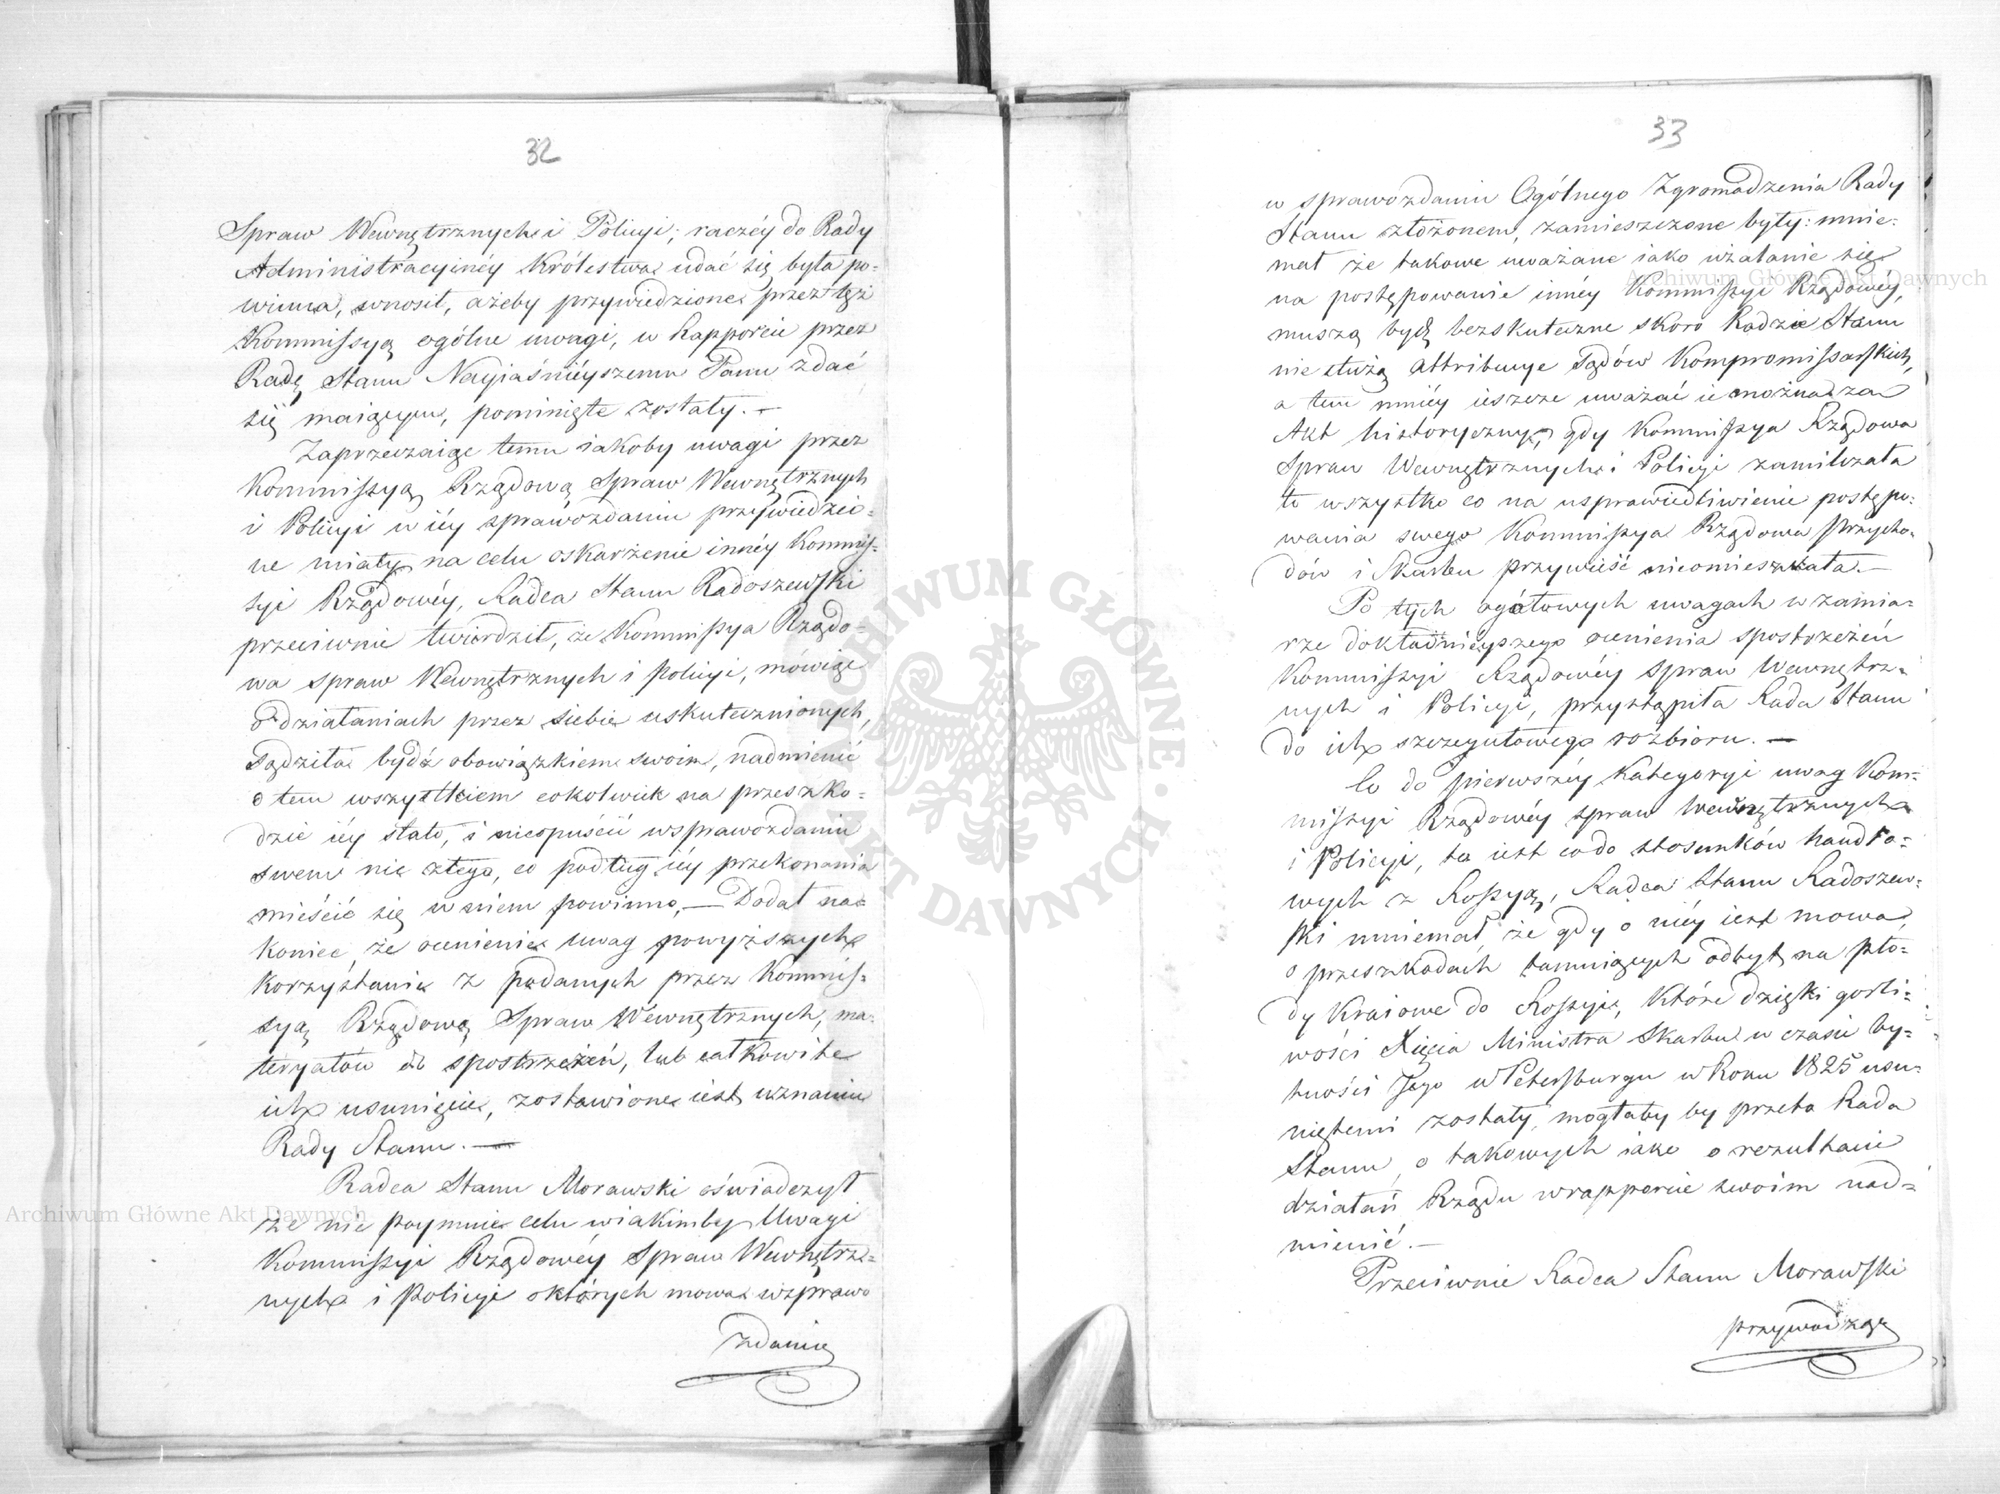 32
Spraw Wewnętrznych i Policyi; raczéy do Rady
Administracyinéy Królestwa udać się była po-
winna, wnosił, ażeby przywiedzione przez tęż
Kommissyą ogólne uwagi, w Rapporcie przez
Radę Stanu Nayiaśnieyszemu Panu zdać
się maiącym, pominięte zostały. —
Zaprzeczaiąc temu iakoby uwagi przez
Kommissyą Rządową Spraw Wewnętrznych
i Policyi w iéy sprawozdaniu przywiedzio-
ne miały na celu oskarżenie innéy Kommis-
syi Rządowéy, Radca Stanu Radoszewski
przeciwnie twierdził, że Kommissya Rządo-
wa Spraw Wewnętrznych i Policyi, mówiąc
o działaniach przez siebie uskutecznionych,
sądziła bydź obowiązkiem swoim, nadmienić
o tem wszystkiem cokolwiek na przeszko-
dzie iéy stało, i nieopuścić w sprawozdaniu
swem nic złego, co podług iéy przekonania
mieścić się w niem powinno, — Dodał na-
koniec, że ocenienie uwag powyższych
korzystanie z podanych przez Kommis-
syą Rządową Spraw Wewnętrznych, ma-
teryałów do spostrzeżeń, lub całkowite
ich usunięcie, zostawione iest uznaniu
Rady Stanu. —
Radca Stanu Morawski oświadczył
że nie poymuie celu w iakimby Uwagi
Kommissyi Rządowéy Spraw Wewnętrz-
nych i Policyi o których mowa w sprawo
zdaniu
33
w sprawozdaniu Ogólnego Zgromadzenia Rady
Stanu złożonem, zamieszczone były: mnie-
mał że takowe uważane iako użalanie się
na postępowanie innéy Kommissyi Rządowey,
muszą bydź bezskuteczne skoro Radzie Stanu
nie służą attribucye Sądów Kompromissarskich,
a tem mniéy ieszcze uważać ie można za
Akt historyczny, gdy Kommissya Rządowa
Spraw Wewnętrznych i Policyi zamilczała
to wszystko co na usprawiedliwienie postępo-
wania swego Kommissya Rządowa Przycho-
dów i Skarbu przywieść nieomieszkała. —
Po tych ogółowych uwagach w zamia-
rze dokładnieyszego ocenienia spostrzeżeń
Kommissyi Rządowéy Spraw Wewnętrz-
nych i Policyi, przystąpiła Rada Stanu
do ich szczegułowego rozbioru. —
Co do pierwszéy kategoryi uwag Kom-
missyi Rządowéy Spraw Wewnętrznych
i Policyi, to iest co do stosunków handlo-
wych z Rossyą, Radca Stanu Radoszew-
ski mniemał, że gdy o niéy iest mowa,
o przeszkodach tamuiących odbyt na pło-
dy Kraiowe do Rossyi, które dzięki gorli-
wości Xięcia Ministra Skarbu w czasie by-
tności Jego w Petersburgu w Roku 1825 usu-
niętemi zostały, mogłaby by przeto Rada
Stanu, o takowych iako o rezultacie
działań Rządu w rapporcie swoim nad-
mienić. —
Przeciwnie Radca Stanu Morawski
przywodząc
Archiwum Główne Akt Dawnych
Archiwum Główne Akt Dawnych
ARCHIWUM GŁÓWNE · AKT DAWNYCH ·